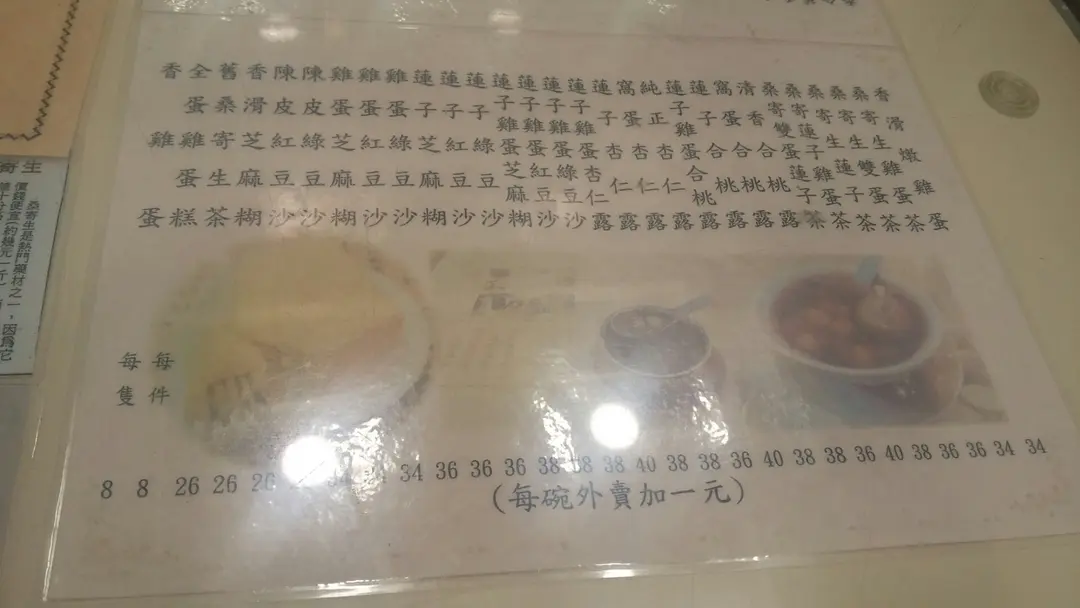 香滑燉雞蛋 34
桑寄生雞蛋茶 34
桑寄生雙蛋茶 36
桑寄生蓮子茶 36
桑寄蓮子雞蛋茶 38
桑寄雙蛋蓮子茶 40
清香合桃露 36
窩蛋合桃露 38
蓮子合桃露 38
蓮子雞蛋合桃露 40
純正杏仁露 36
窩蛋杏仁露 38
蓮子杏仁露 38
蓮子雞蛋杏仁露 40
蓮子雞蛋綠豆沙 38
蓮子雞蛋紅豆沙 38
蓮子雞蛋芝麻糊 38
蓮子綠豆沙 36
蓮子紅豆沙 36
蓮子芝麻糊 36
雞蛋綠豆沙 34
雞蛋紅豆沙
雞蛋芝麻糊 34
陳皮綠豆沙
陳皮紅豆沙 26
香滑芝麻糊 26
舊桑寄生茶 26
全蛋雞蛋糕 每件 8
香雞蛋 每隻 8
(每碗外賣加一元)
寄生
桑寄生是熱門藥材之一，因為它
價錢便宜